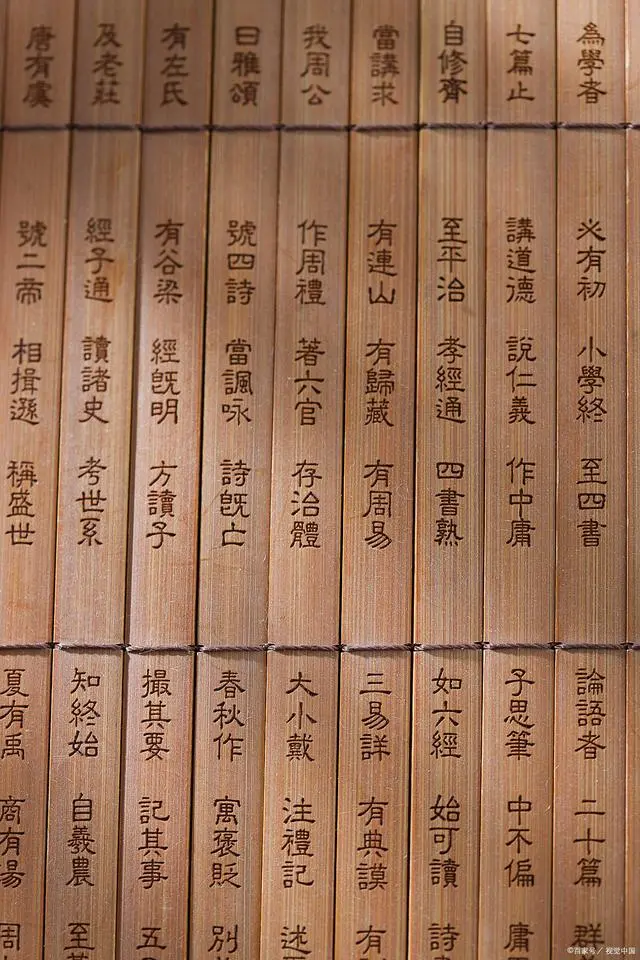 為學者 必有初 小學終 至四書 論語者 二十篇 群
七篇止 講道德 說仁義 作中庸 子思筆 中不偏 庸
自修齊 至平治 孝經通 四書熟 如六經 始可讀 詩
當講求 有連山 有歸藏 有周易 三易詳 有典謨 有
我周公 作周禮 著六官 存治體 大小戴 注禮記 述
曰雅頌 號四詩 當諷咏 詩既亡 春秋作 寓褒貶 別
有左氏 有谷梁 經既明 方讀子 撮其要 記其事 五
及老莊 經子通 讀諸史 考世系 知終始 自羲農 至
唐有虞 號二帝 相揖遜 稱盛世 夏有禹 商有湯 周
©百家号／视觉中国